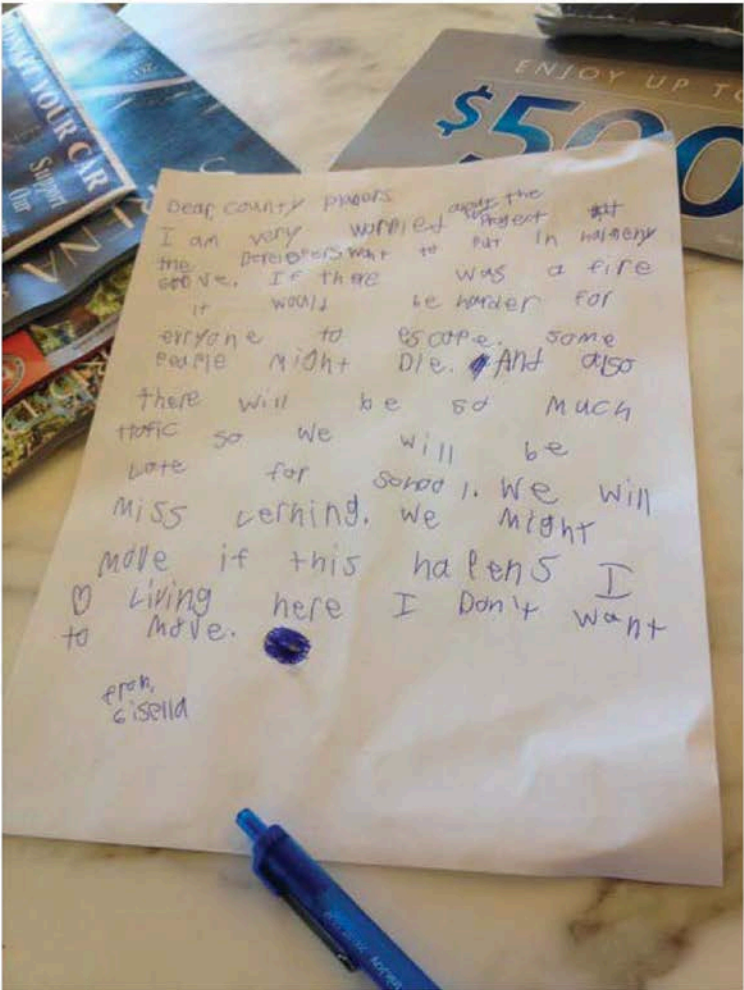 ENJOY UP TO
$500
YOUR CAR
Support
Our
Dear County planors
I am very worried about the Project tht
the Developers want to Put in harmeny
Grove. If there was a fire
it would be harder for
evryone to escape. some
people might Die. And also
there will be so much
ttafic so we will be
Late for school. We will
Miss Lerning. we might
move if this hapens I
♡ Living here I Don't want
to move.
from,
Gisella